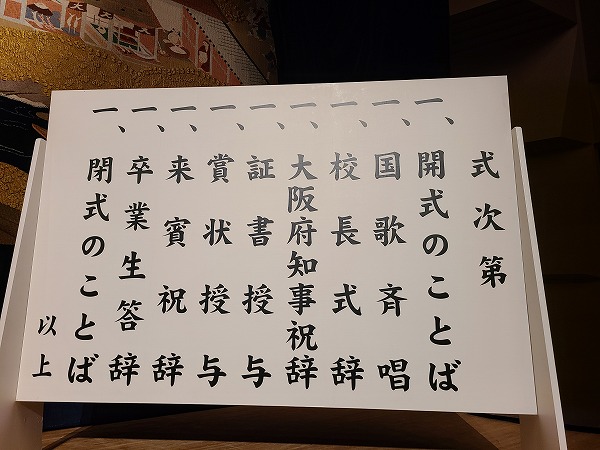 式次第
一、開式のことば
一、国歌斉唱
一、校長式辞
一、大阪府知事祝辞
一、証書授与
一、賞状授与
一、来賓祝辞
一、卒業生答辞
一、閉式のことば
以上